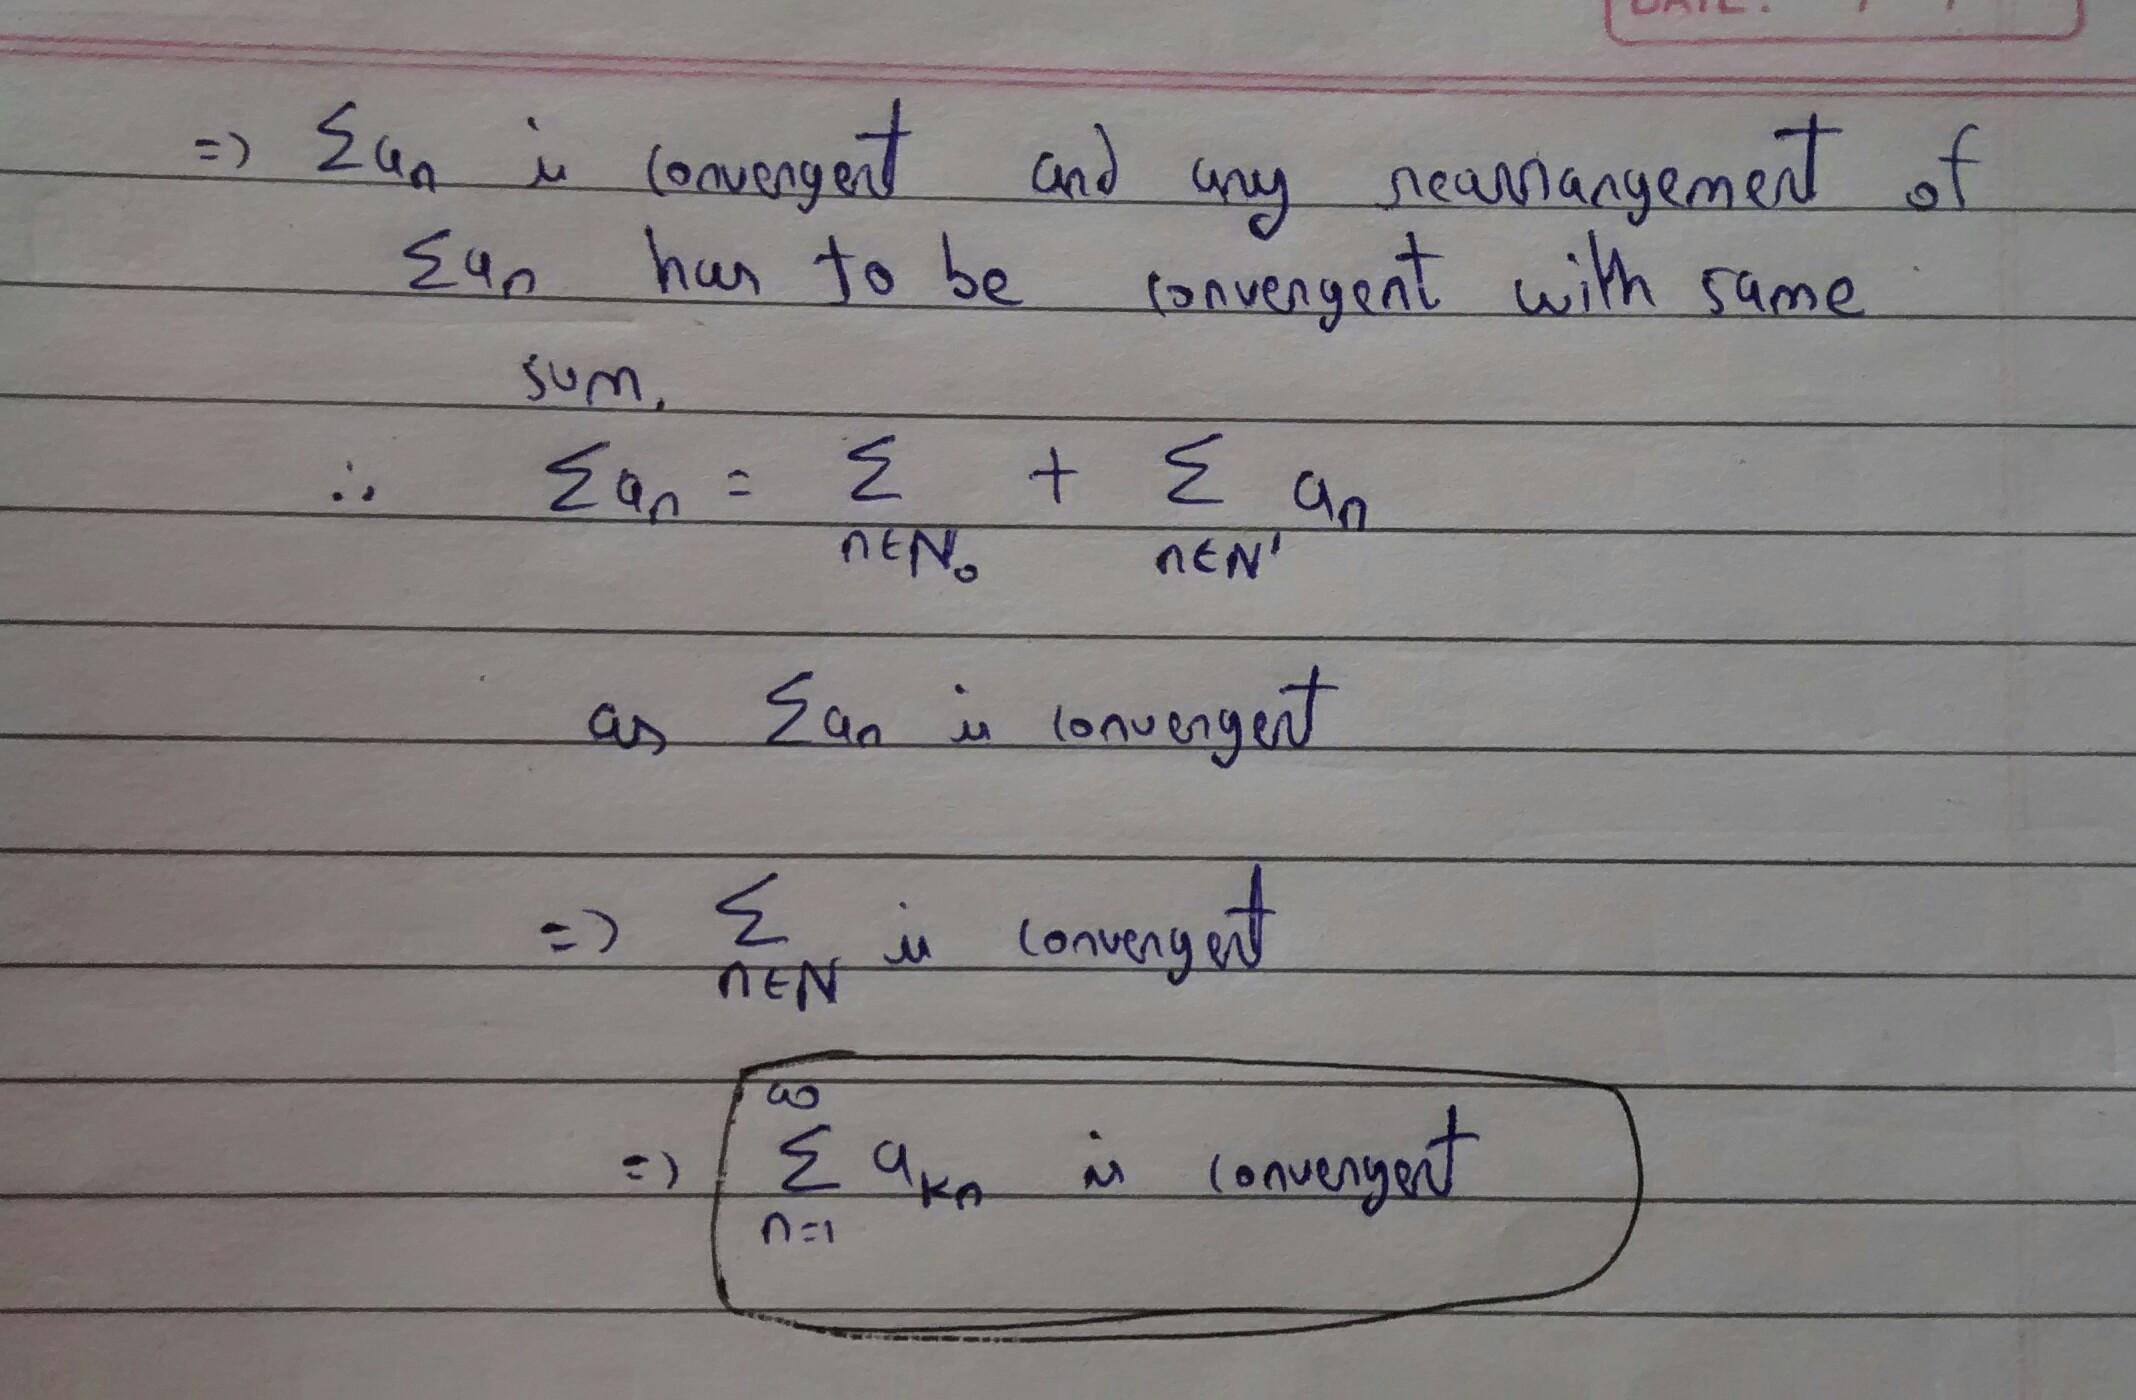 DATE: / /
=) Σan is convergent and any rearrangement of
Σan has to be convergent with same
sum.
∴ Σan = Σ + Σ an
n∈N₀ n∈N'
as Σan is convergent
=) Σ is convergent
n∈N
∞
=) Σ akn is convergent
n=1